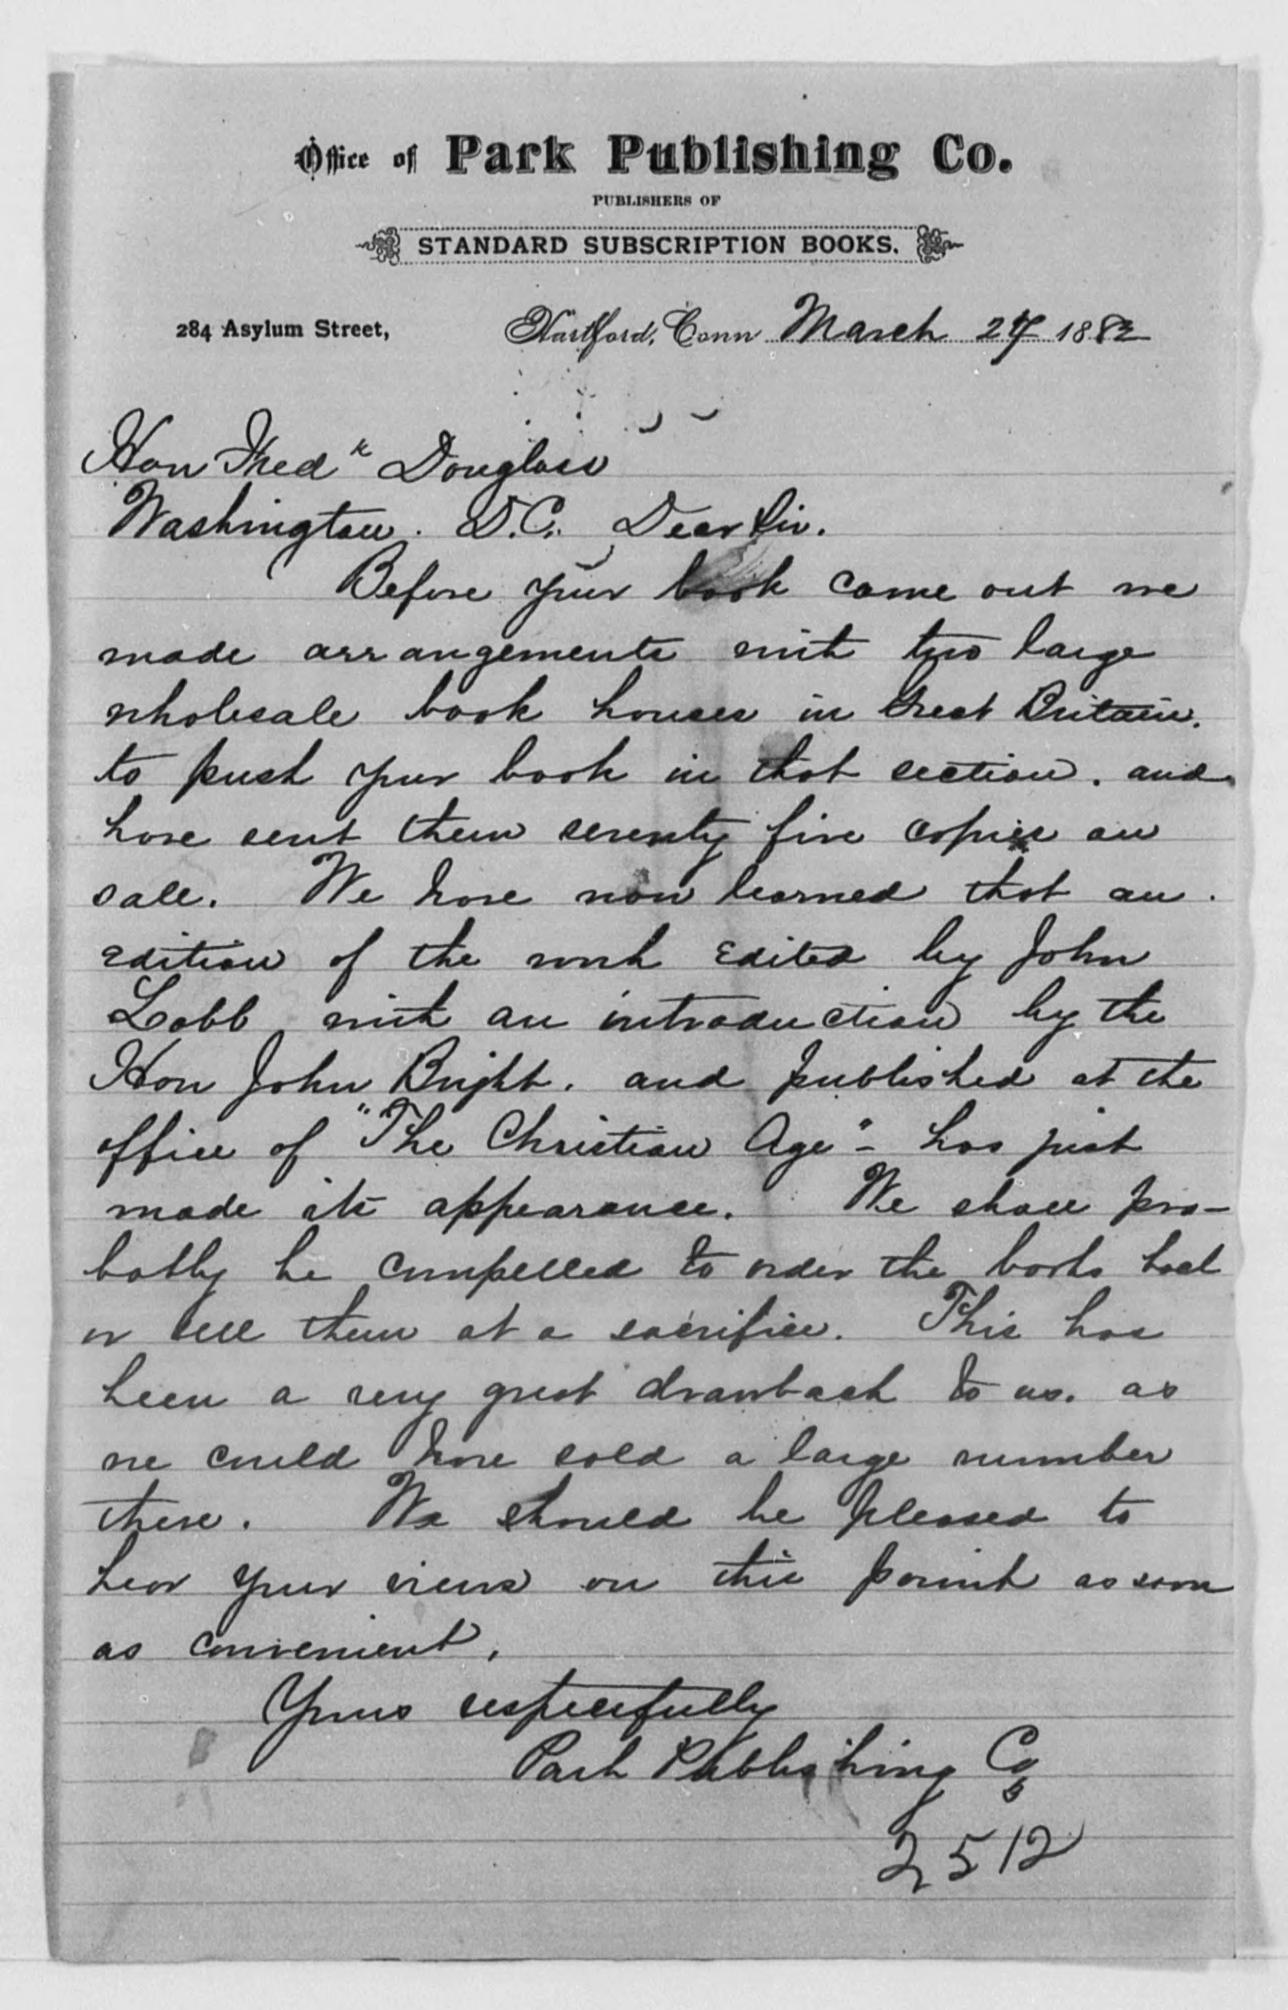 Office of Park Publishing Co.
PUBLISHERS OF
STANDARD SUBSCRIPTION BOOKS.
284 Asylum Street, Hartford, Conn March 27 1882
Hon Fredk Douglass
Washington. D.C. Dear Sir.
Before your book came out we
made arrangements with two large
wholesale book houses in Great Britain.
to push your book in that section. and
have sent them seventy five copies on
sale. We have now learned that an
edition of the work edited by John
Lobb, with an introduction by the
Hon John Bright. and published at the
office of "The Christian Age" - has just
made its appearance. We shall pro-
bably be compelled to order the books back
or sell them at a sacrifice. This has
been a very great drawback to us. as
we could have sold a large number
there. We should be pleased to
hear your views on this point as soon
as convenient.
Yours respectfully
Park Publishing Co
2512